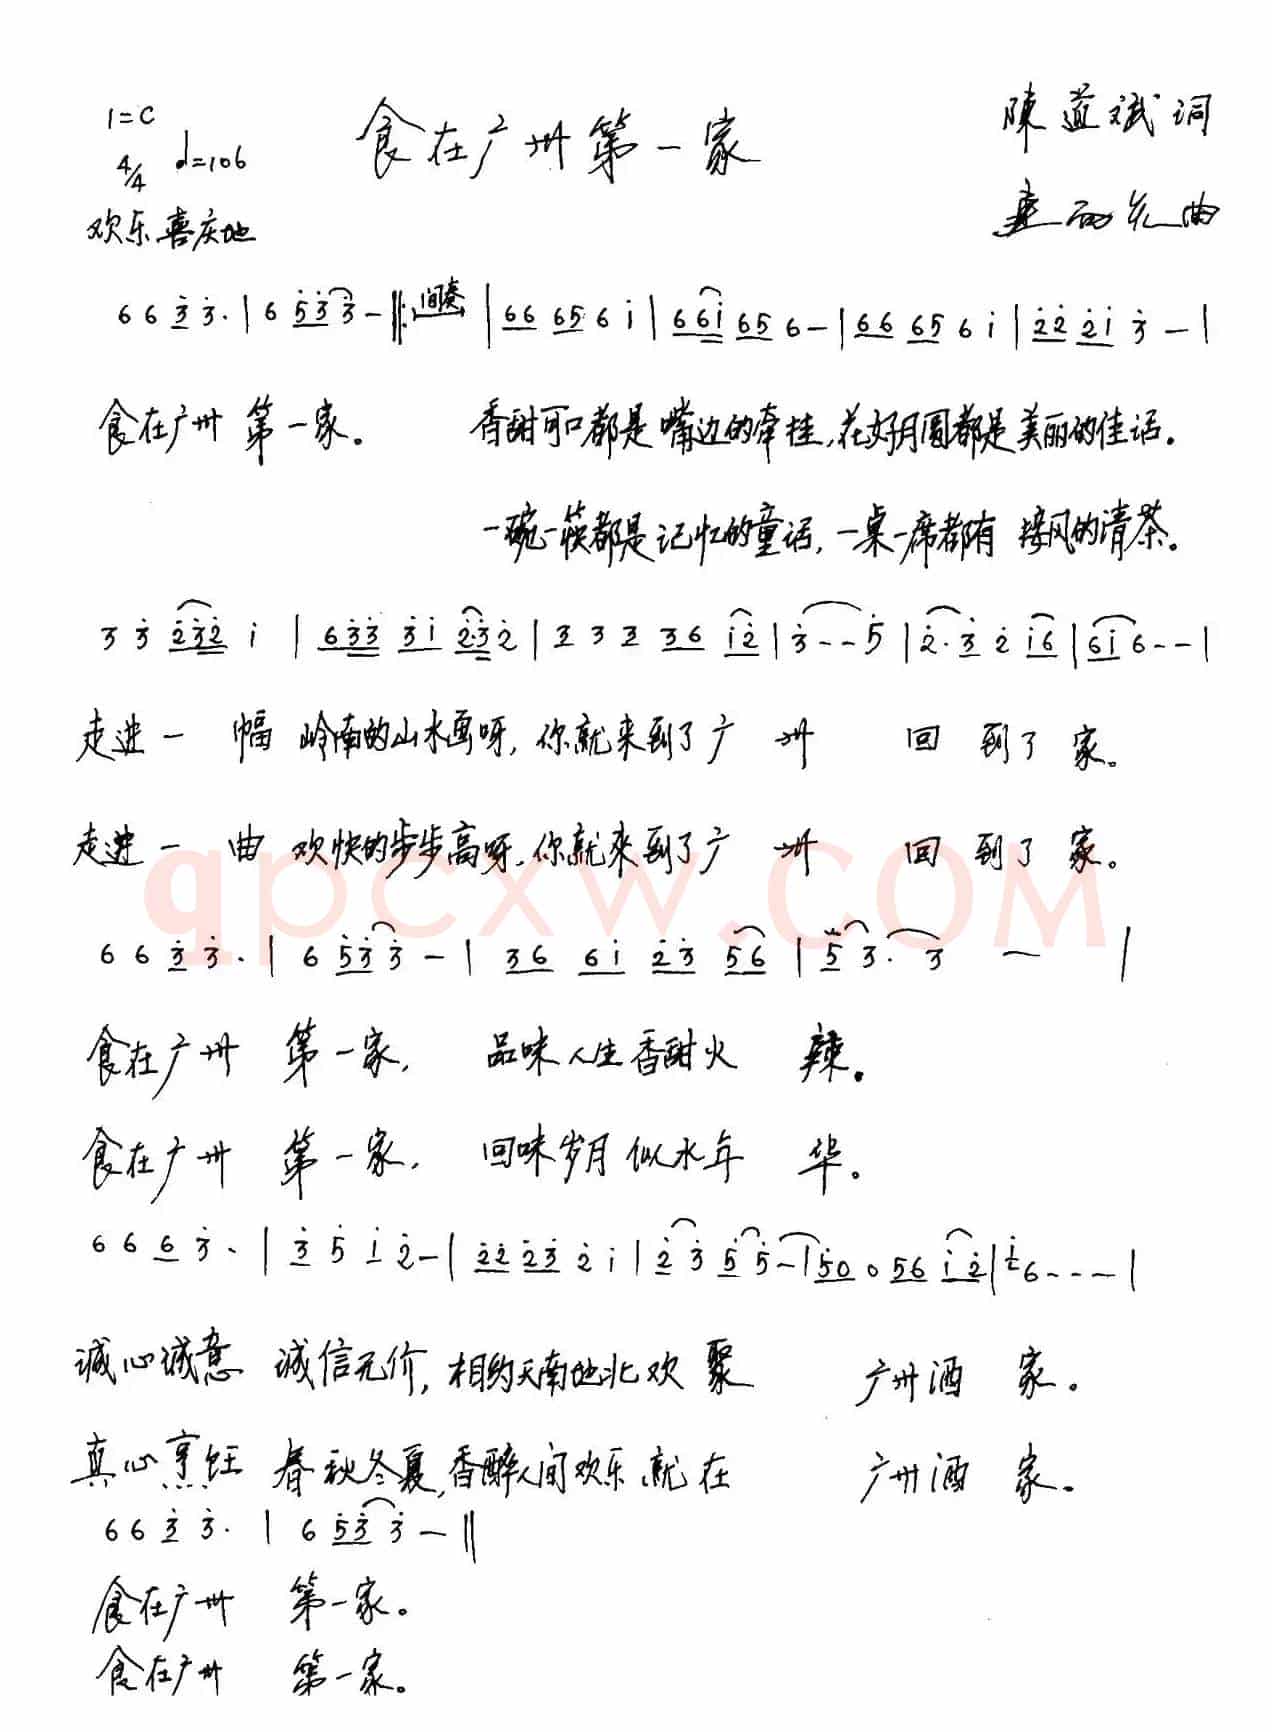 1=C 食在广州第一家 陳道斌词
4/4 ♩=106
欢乐喜庆地 曲
6 6 3̇ 3̇. | 6 5̇3̇ 3̇ - ‖: 间奏 | 66 65 6 i | 66i 65 6 - | 66 65 6 i | 2̇2̇ 2̇i 3̇ - |
食在广州 第一家。 香甜可口都是嘴边的牵挂,花好月圆都是美丽的佳话。
一碗一筷都是记忆的童话,一桌一席都有接风的清茶。
3 3̇ 2̇3̇2̇ i | 63̇3̇ 3̇i 2̇·3̇2̇ | 3 3 3 36 i2̇ | 3̇ - - 5̇ | 2̇. 3̇ 2̇ i6 | 6i 6 - - |
走进一 幅 岭南的山水画呀,你就来到了广 州 回 到了 家。
走进一 曲 欢快的步步高呀,你就來到了广 州 回 到了 家。
qpcxw.COM
6 6 3̇ 3̇. | 6 5̇3̇ 3̇ - | 36 6i 2̇3̇ 56 | 5 3. 3 - |
食在广州 第一家, 品味人生香甜火 辣。
食在广州 第一家, 回味岁月似水年 华。
6 6 6 3̇. | 3̇ 5̇ i 2̇ - | 2̇2̇ 2̇3̇ 2̇ i | 2̇ 3̇ 5̇ 5̇ - | 50 0 56 i2̇ | i 6 - - - |
诚心诚意 诚信无价,相约天南地北欢 聚 广州酒 家。
真心烹饪 春秋冬夏,香醉人间欢乐就在 广州酒 家。
6 6 3̇ 3̇. | 6 5̇3̇ 3̇ - ‖
食在广州 第一家。
食在广州 第一家。